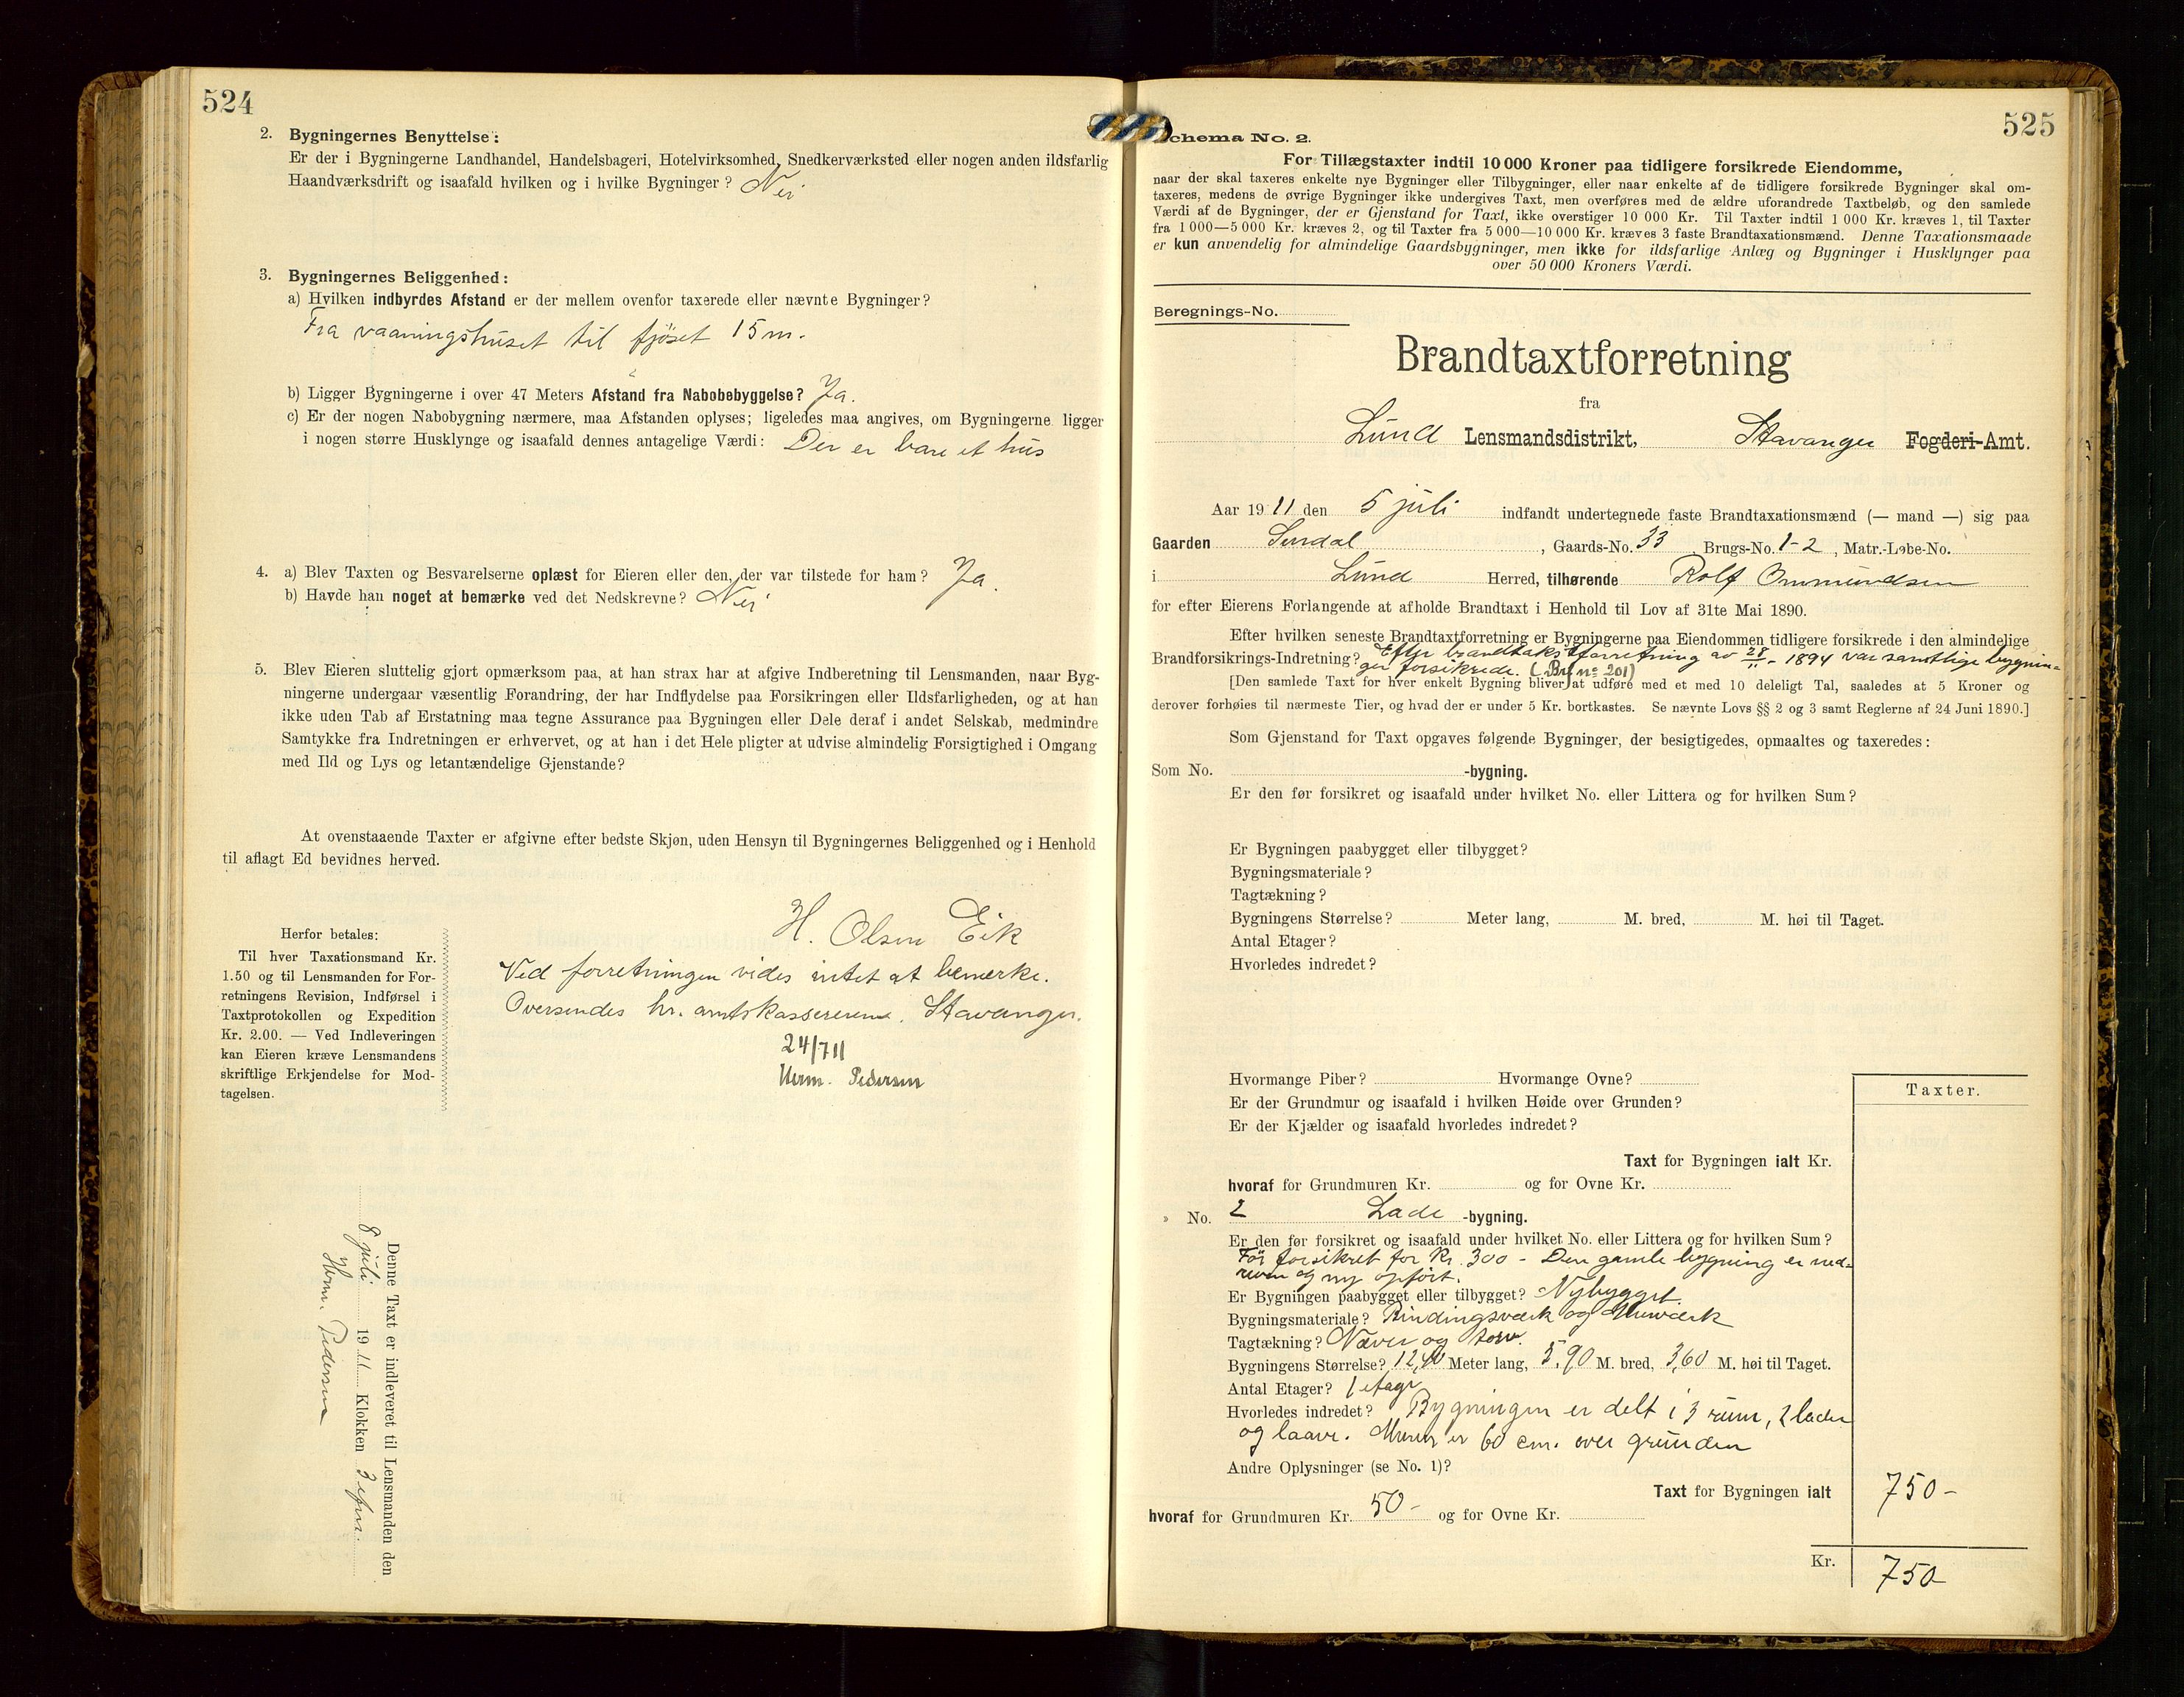 524
2. Bygningernes Benyttelse:
Er der i Bygningerne Landhandel, Handelsbageri, Hotelvirksomhed, Snedkerværksted eller nogen anden ildsfarlig
Haandværksdrift og isaafald hvilken og i hvilke Bygninger? Nei
3. Bygningernes Beliggenhed:
a) Hvilken indbyrdes Afstand er der mellem ovenfor taxerede eller nævnte Bygninger?
Fra vaaningshuset til fjöset 15 m.
b) Ligger Bygningerne i over 47 Meters Afstand fra Nabobebyggelse? Ja.
c) Er der nogen Nabobygning nærmere, maa Afstanden oplyses; ligeledes maa angives, om Bygningerne ligger
i nogen større Husklynge og isaafald dennes antagelige Værdi: Der er bare et hus
4. a) Blev Taxten og Besvarelserne oplæst for Eieren eller den, der var tilstede for ham? Ja.
b) Havde han noget at bemærke ved det Nedskrevne? Nei
5. Blev Eieren sluttelig gjort opmærksom paa, at han strax har at afgive Indberetning til Lensmanden, naar Byg-
ningerne undergaar væsentlig Forandring, der har Indflydelse paa Forsikringen eller Ildsfarligheden, og at han
ikke uden Tab af Erstatning maa tegne Assurance paa Bygningen eller Dele deraf i andet Selskab, medmindre
Samtykke fra Indretningen er erhvervet, og at han i det Hele pligter at udvise almindelig Forsigtighed i Omgang
med Ild og Lys og letantændelige Gjenstande?
At ovenstaaende Taxter er afgivne efter bedste Skjøn, uden Hensyn til Bygningernes Beliggenhed og i Henhold
til aflagt Ed bevidnes herved.
H. Olsen Eik
Ved forretningen vides intet at bemerke.
Oversendes hr. amtskassereren, Stavanger.
24/7 11
Herm. Pedersen
Herfor betales:
Til hver Taxationsmand Kr.
1.50 og til Lensmanden for For-
retningens Revision, Indførsel i
Taxtprotokollen og Expedition
Kr. 2.00. — Ved Indleveringen
kan Eieren kræve Lensmandens
skriftlige Erkjendelse for Mod-
tagelsen.
Denne Taxt er indleveret til Lensmanden den
8 juli 1911 Klokken 3 efm.
Herm. Pedersen
525
Schema No. 2.
For Tillægstaxter indtil 10 000 Kroner paa tidligere forsikrede Eiendomme,
naar der skal taxeres enkelte nye Bygninger eller Tilbygninger, eller naar enkelte af de tidligere forsikrede Bygninger skal om-
taxeres, medens de øvrige Bygninger ikke undergives Taxt, men overføres med de ældre uforandrede Taxtbeløb, og den samlede
Værdi af de Bygninger, der er Gjenstand for Taxt, ikke overstiger 10 000 Kr. Til Taxter indtil 1 000 Kr. kræves 1, til Taxter
fra 1 000—5 000 Kr. kræves 2, og til Taxter fra 5 000—10 000 Kr. kræves 3 faste Brandtaxationsmænd. Denne Taxationsmaade
er kun anvendelig for almindelige Gaardsbygninger, men ikke for ildsfarlige Anlæg og Bygninger i Husklynger paa
over 50 000 Kroners Værdi.
Beregnings-No.
Brandtaxtforretning
fra
Lund Lensmandsdistrikt, Stavanger Fogderi-Amt.
Aar 1911 den 5 juli indfandt undertegnede faste Brandtaxationsmænd (— mand —) sig paa
Gaarden Surdal, Gaards-No. 33, Brugs-No. 1-2, Matr.-Løbe-No.
i Lund Herred, tilhørende Rolf Ommundsen
for efter Eierens Forlangende at afholde Brandtaxt i Henhold til Lov af 31te Mai 1890.
Efter hvilken seneste Brandtaxtforretning er Bygningerne paa Eiendommen tidligere forsikrede i den almindelige
Brandforsikrings-Indretning? Efter brandtakstforretning av 28/11 - 1894 var samtlige bygnin-
ger forsikrede. (Br. no 201)
[Den samlede Taxt for hver enkelt Bygning bliver at udføre med et med 10 deleligt Tal, saaledes at 5 Kroner og
derover forhøies til nærmeste Tier, og hvad der er under 5 Kr. bortkastes. Se nævnte Lovs §§ 2 og 3 samt Reglerne af 24 Juni 1890.]
Som Gjenstand for Taxt opgaves følgende Bygninger, der besigtigedes, opmaaltes og taxeredes:
Som No. -bygning.
Er den før forsikret og isaafald under hvilket No. eller Littera og for hvilken Sum?
Er Bygningen paabygget eller tilbygget?
Bygningsmateriale?
Tagtækning?
Bygningens Størrelse? Meter lang, M. bred, M. høi til Taget.
Antal Etager?
Hvorledes indredet?
Hvormange Piber? Hvormange Ovne?
Taxter.
Er der Grundmur og isaafald i hvilken Høide over Grunden?
Er der Kjælder og isaafald hvorledes indredet?
Taxt for Bygningen ialt Kr.
hvoraf for Grundmuren Kr. og for Ovne Kr.
» No. 2 Lade -bygning.
Er den før forsikret og isaafald under hvilket No. eller Littera og for hvilken Sum?
Før forsikret for Kr. 300 - Den gamle bygning er ned-
reven og ny opført.
Er Bygningen paabygget eller tilbygget? Nybygget
Bygningsmateriale? Bindingsværk og Murværk
Tagtækning? Næver og torv.
Bygningens Størrelse? 12,40 Meter lang, 5,90 M. bred, 3,60 M. høi til Taget.
Antal Etager? 1 etage
Hvorledes indredet? Bygningen er delt i 3 rum, 2 lader
og laave. Muren er 60 cm. over grunden
Andre Oplysninger (se No. 1)?
Taxt for Bygningen ialt 750-
hvoraf for Grundmuren Kr. 50- og for Ovne Kr.
Kr. 750-